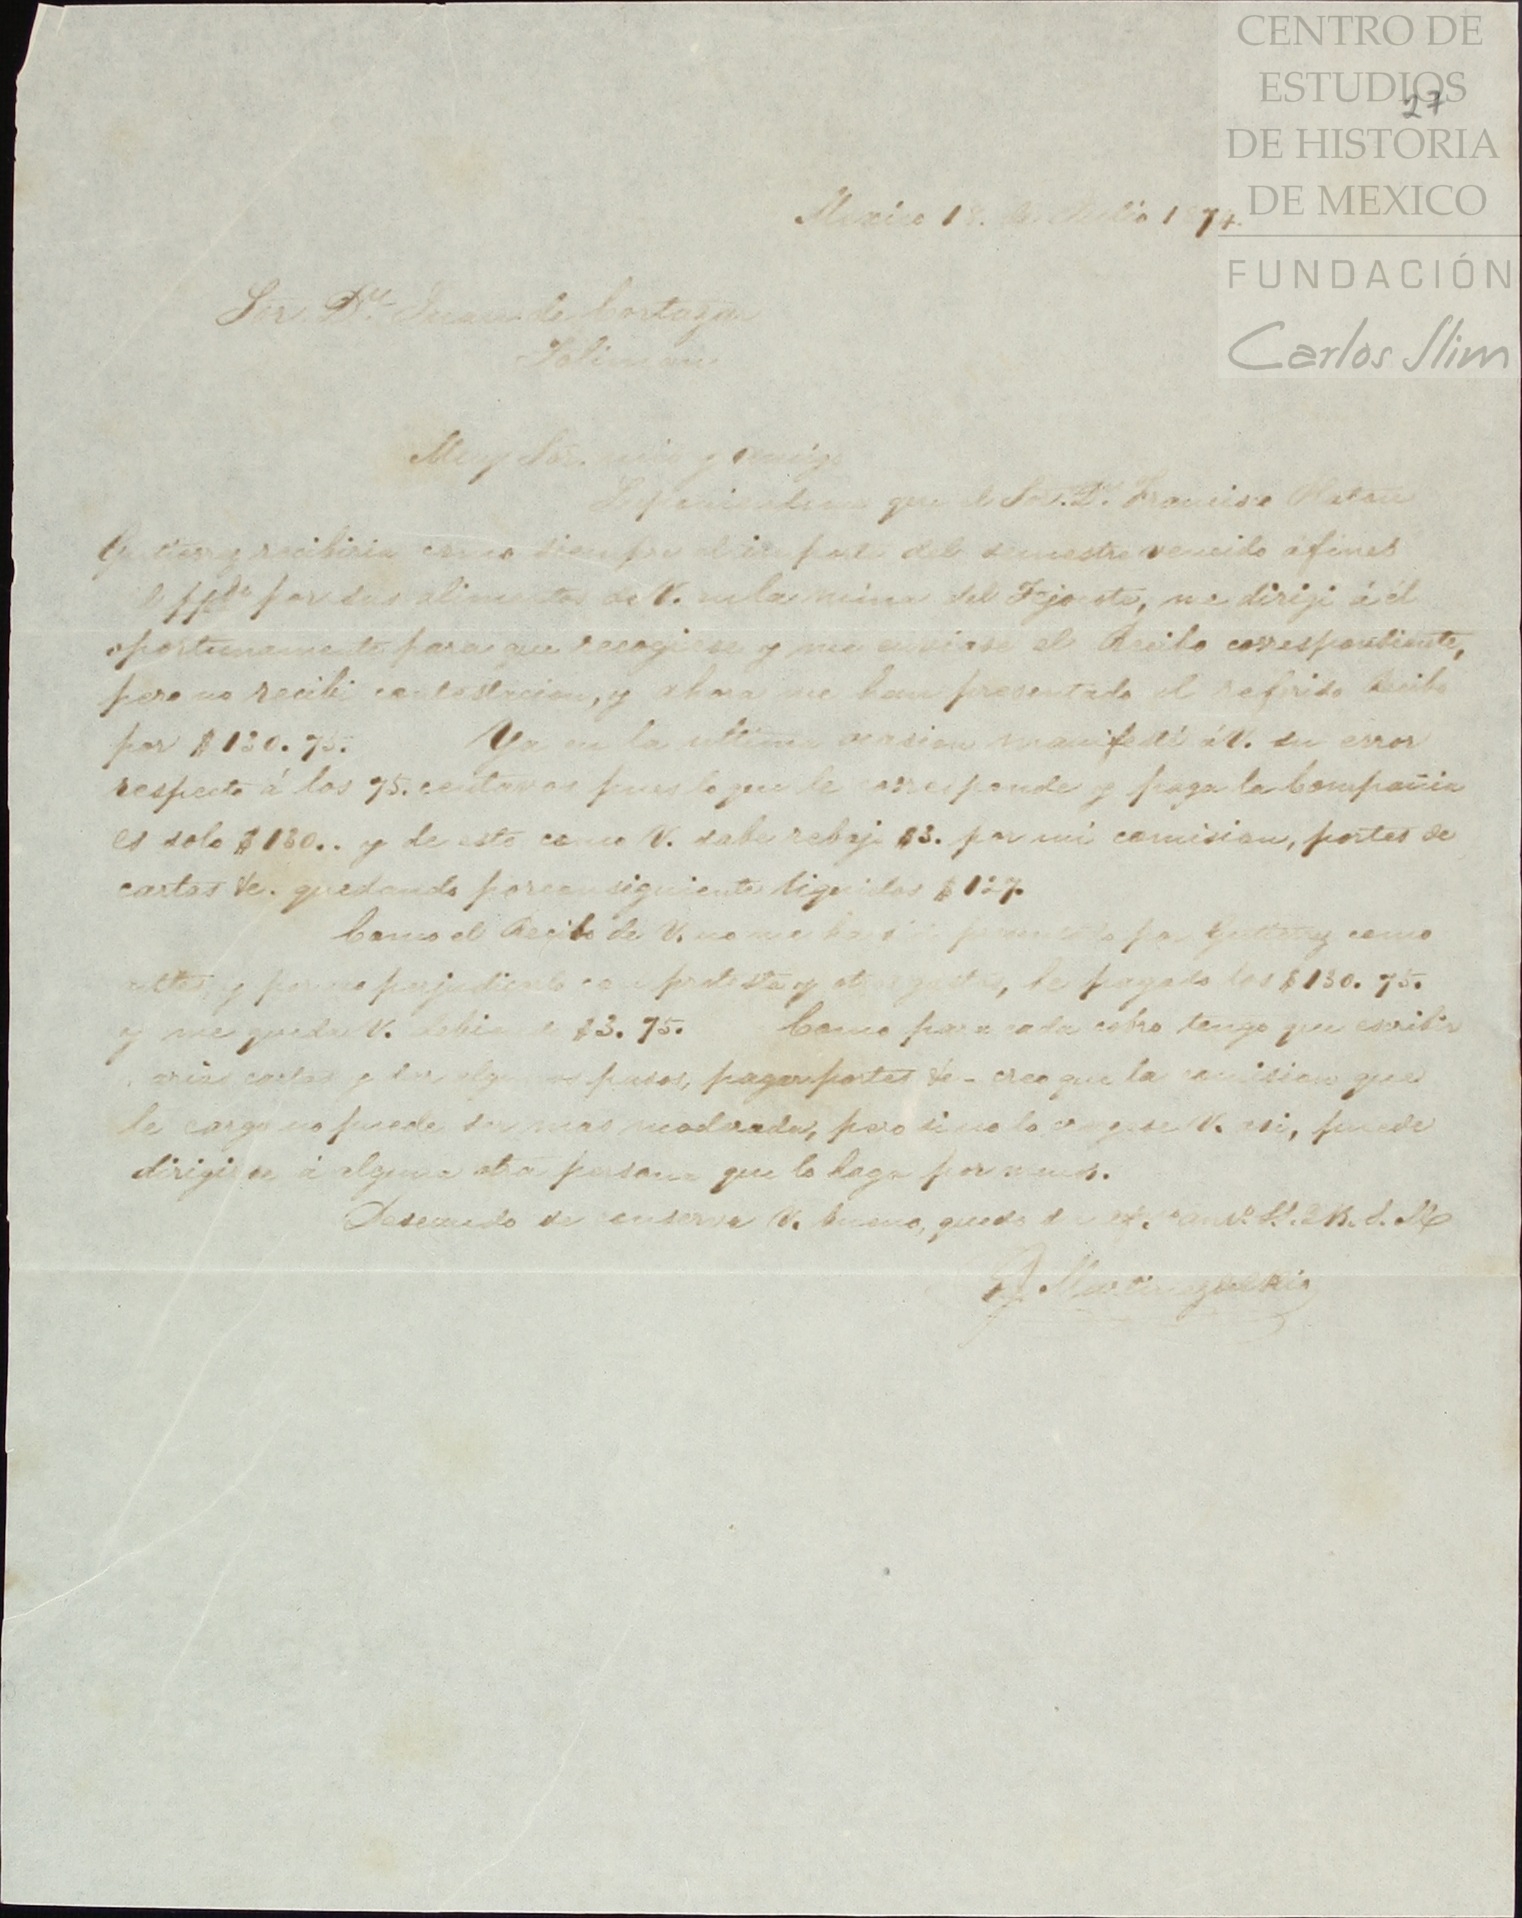 CENTRO DE
ESTUDIOS
27
DE HISTORIA
DE MEXICO
FUNDACIÓN
Carlos Slim
Mexico 18. de Julio 1874.
Sor. Dn. Juan de Cortazar
Toliman
Muy Sor. mio y amigo
que el Sor. Dn. Francisco
Gutierrez recibiria como siempre el importe del semestre vencido á fines
por sus alimentos de V. en la mina del me dirigi á él
oportunamente para que recogiese y me enviase el Recibo correspondiente,
pero no recibi contestacion, y ahora me han presentado el referido Recibo
por $130.75. Ya en la ultima ocasion manifesté á V. su error
respecto á los 75. centavos pues lo que le corresponde y paga la Compañia
es solo $130.. y de esto como V. sabe rebajo $3. por mi comision, portes de
cartas &c. quedando por consiguiente liquidos $127.
Como el Recibo de V. no me ha sido presentado por Gutierrez como
y por no perjudicarlo con protesta y otros gastos, he pagado los $130.75.
y me queda V. debiendo $3.75. Como para cada cobro tengo que escribir
varias cartas y dar algunos pasos, pagar portes &c - creo que la comision que
le cargo no puede ser mas moderada, pero si no lo creyese V. asi, puede
dirigirse á alguna otra persona que lo haga por menos.
Deseando se conserve V. bueno, quedo su af.mo am.o S.S. Q.B.S.M.
Martinez del Rio